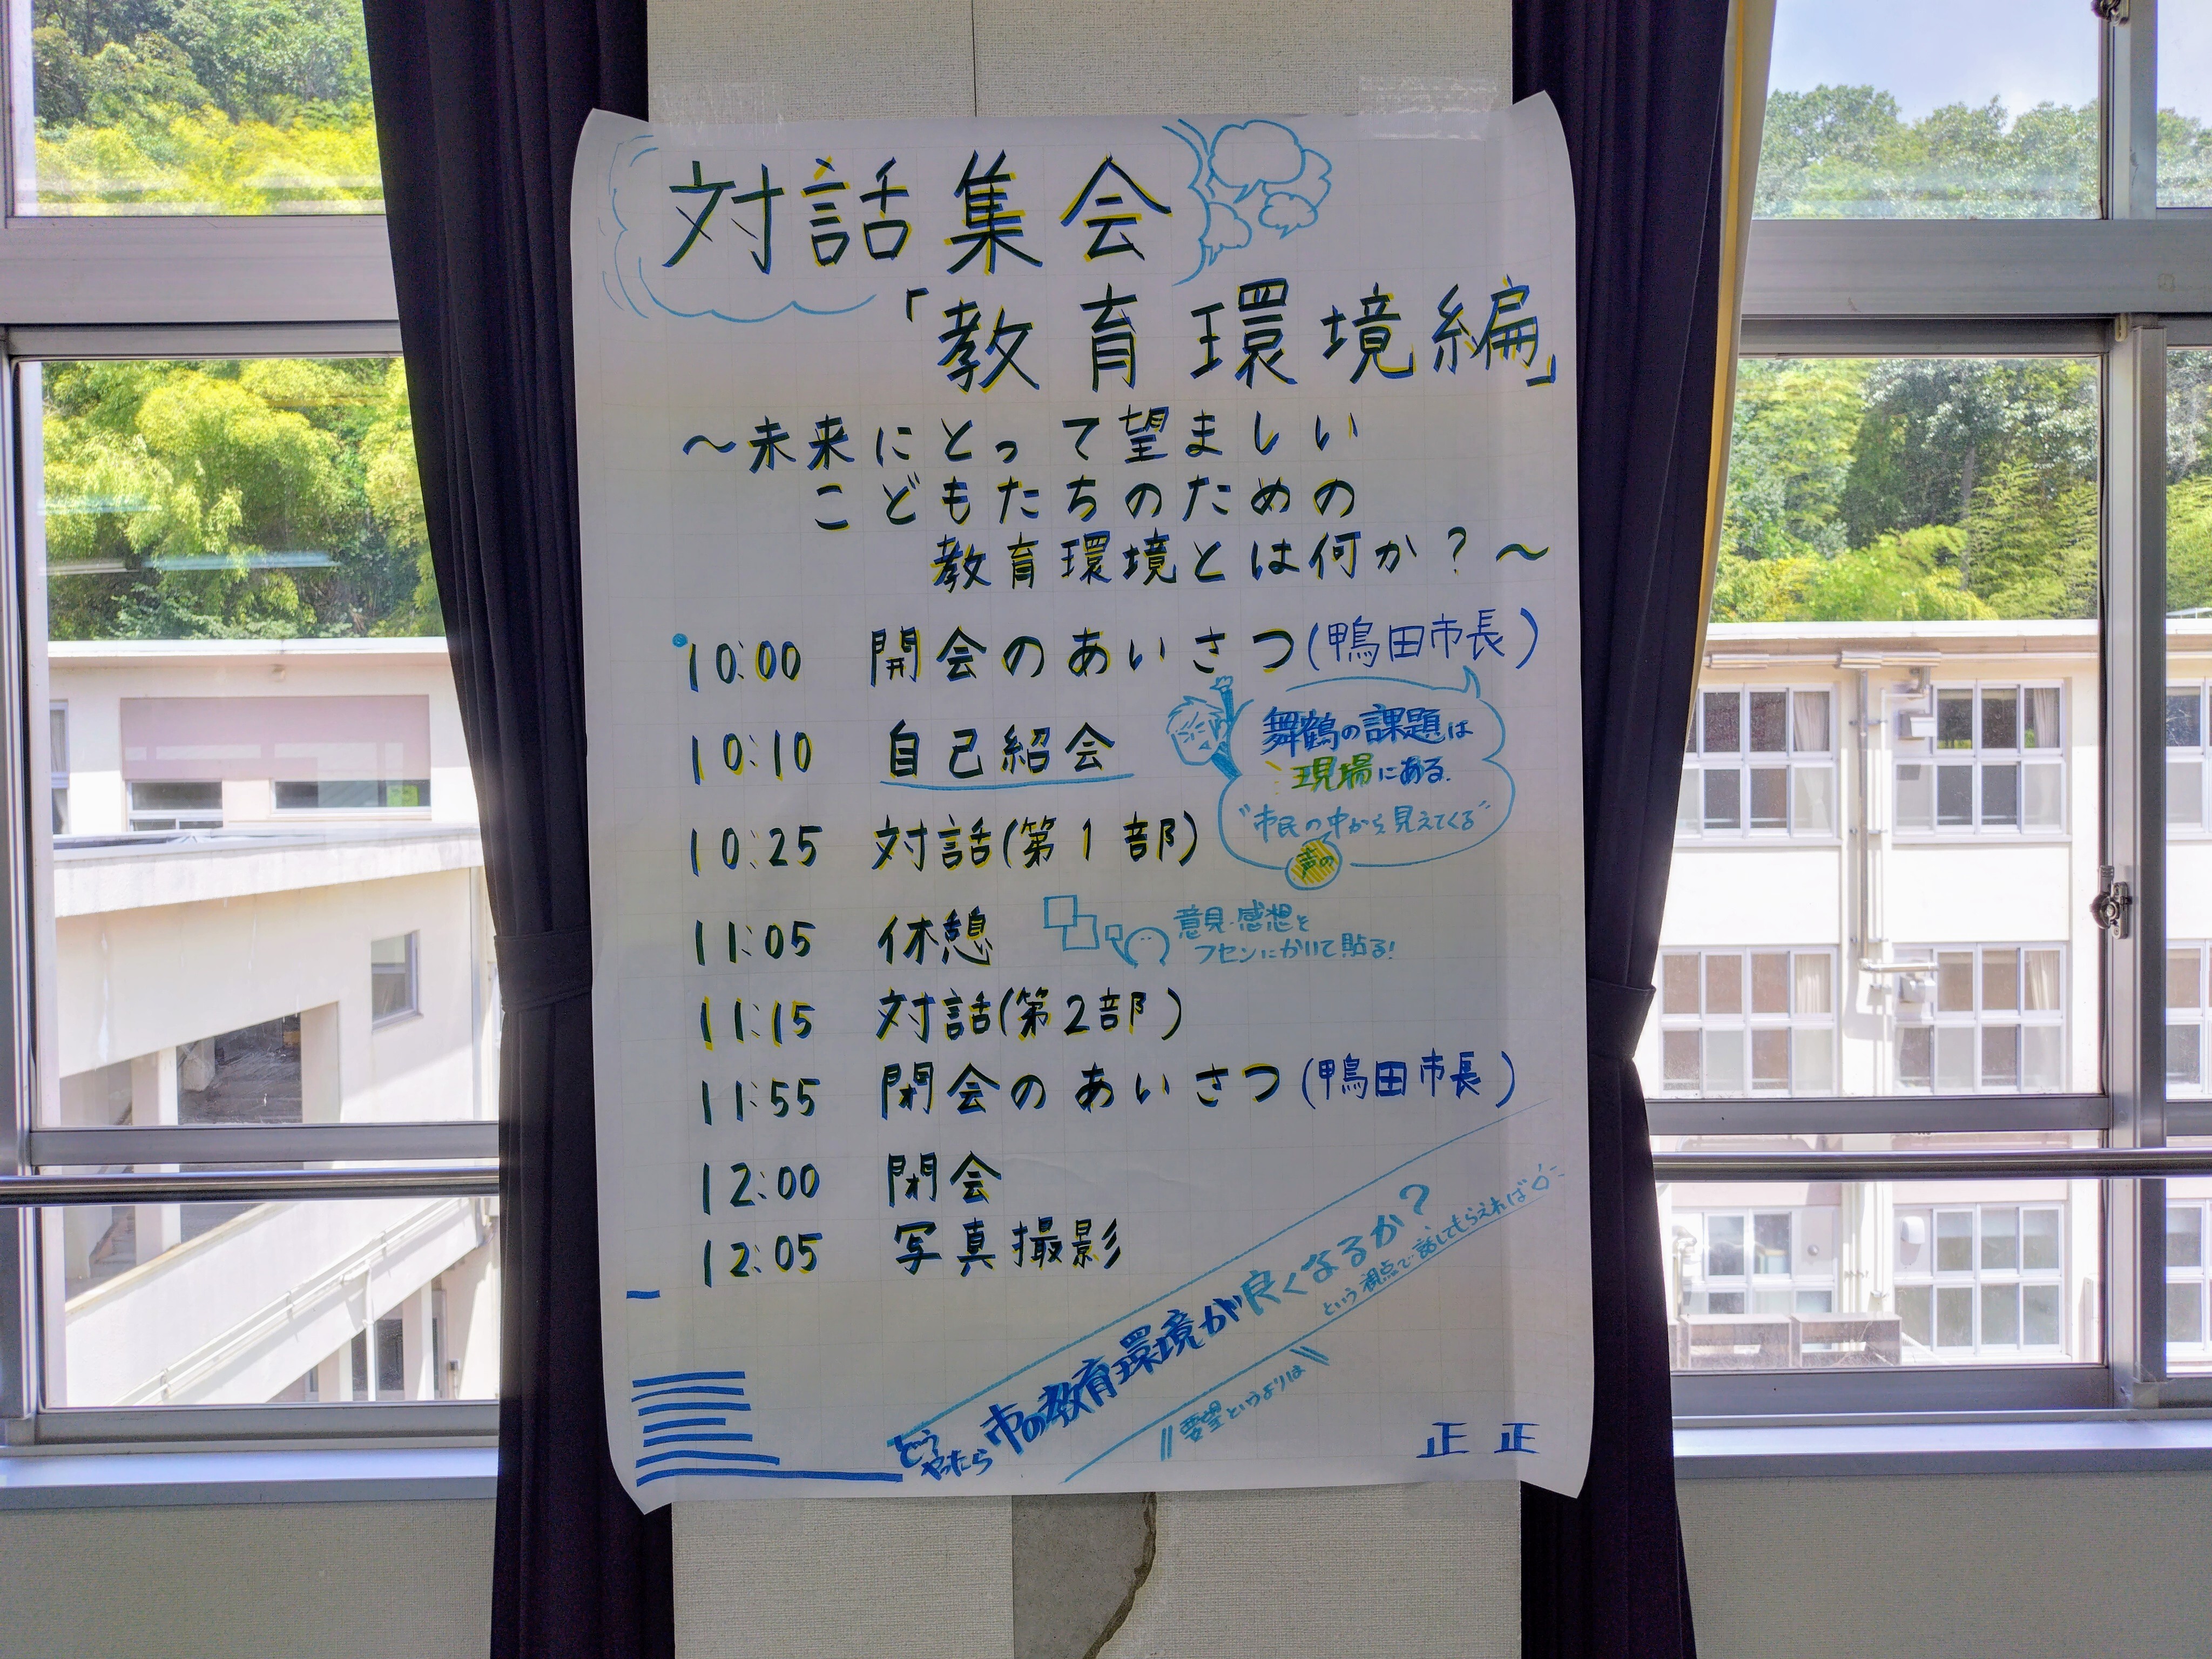 対話集会
「教育環境編」
～未来にとって望ましい
こどもたちのための
教育環境とは何か？～
10:00 開会のあいさつ(鴨田市長)
10:10 自己紹会
舞鶴の課題は
現場にある.
"市民の中から見えてくる"
声の
10:25 対話(第1部)
11:05 休憩
意見・感想を
フセンにかいて貼る!
11:15 対話(第2部)
11:55 閉会のあいさつ(鴨田市長)
12:00 閉会
12:05 写真撮影
どうやったら市の教育環境が良くなるか?
という視点で話してもらえれば
要望というよりは
正正